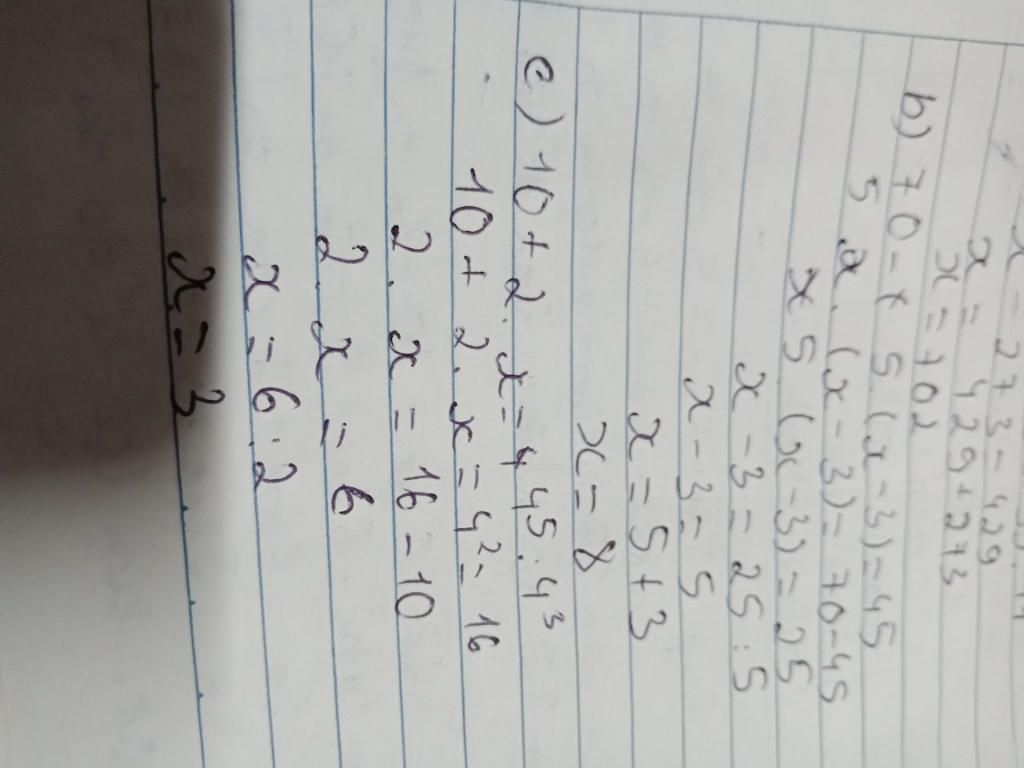 x - 273 = 429
x = 429 + 273
x = 702
b) 70 - x 5 . (x - 3) = 45
5 x . (x - 3) = 70 - 45
x 5 (x - 3) = 25
x - 3 = 25 : 5
x - 3 = 5
x = 5 + 3
x = 8
c) 10 + 2 . x = 4 4⁵ : 4³
10 + 2 . x = 4² = 16
2 . x = 16 - 10
2 . x = 6
x = 6 : 2
x = 3